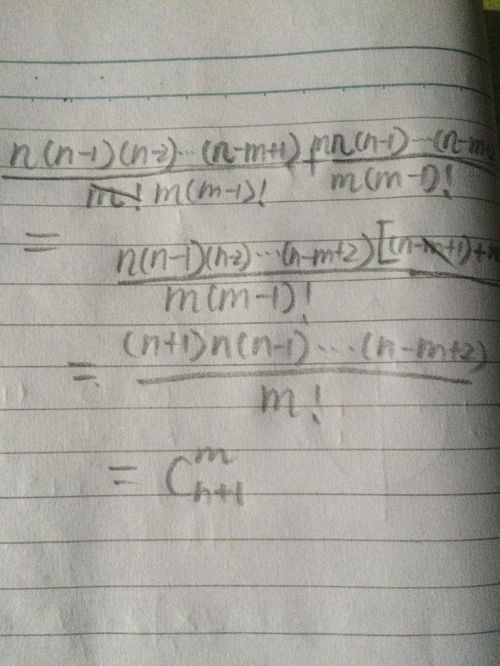 n(n-1)(n-2)···(n-m+1) + mn(n-1)···(n-m
m! m(m-1)! m(m-1)!
=
n(n-1)(n-2)···(n-m+2)[(n-m+1)+
m(m-1)!
= (n+1)n(n-1)···(n-m+2)
m!
= C^m_{n+1}